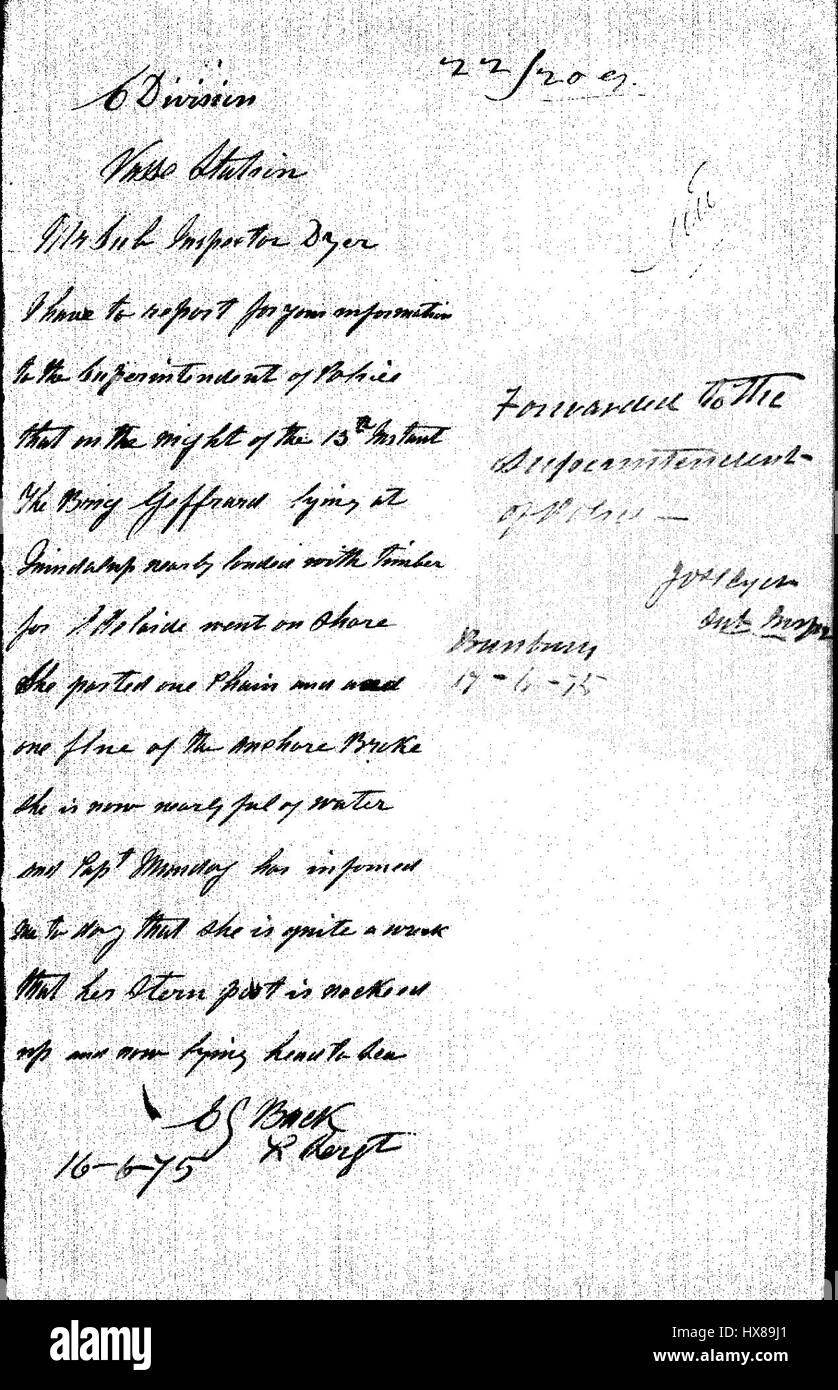 22/209
C Division
Vasse Station
Mr Sub Inspector Dyer
I have to report for your information
to the Superintendent of Police
that on the night of the 13th Instant
The Brig Geffrard lying at
Quindalup nearly loaded with timber
for Adelaide went on Shore
She parted one Chain and and
one flue of the anchore Broke
She is now nearly ful of water
and Capt Munday has infomed
me to day that she is quite a wreck
that her Stern post is nocked
up and now lying head to Sea
Back
L Sergt
16-6-75
Forwarded to the
Superintendent
of Police —
Jos Dyer
Sub Inspr
Bunbury
17-6-75
alamy
Image ID: HX89J1
www.alamy.com
alamy stock photo